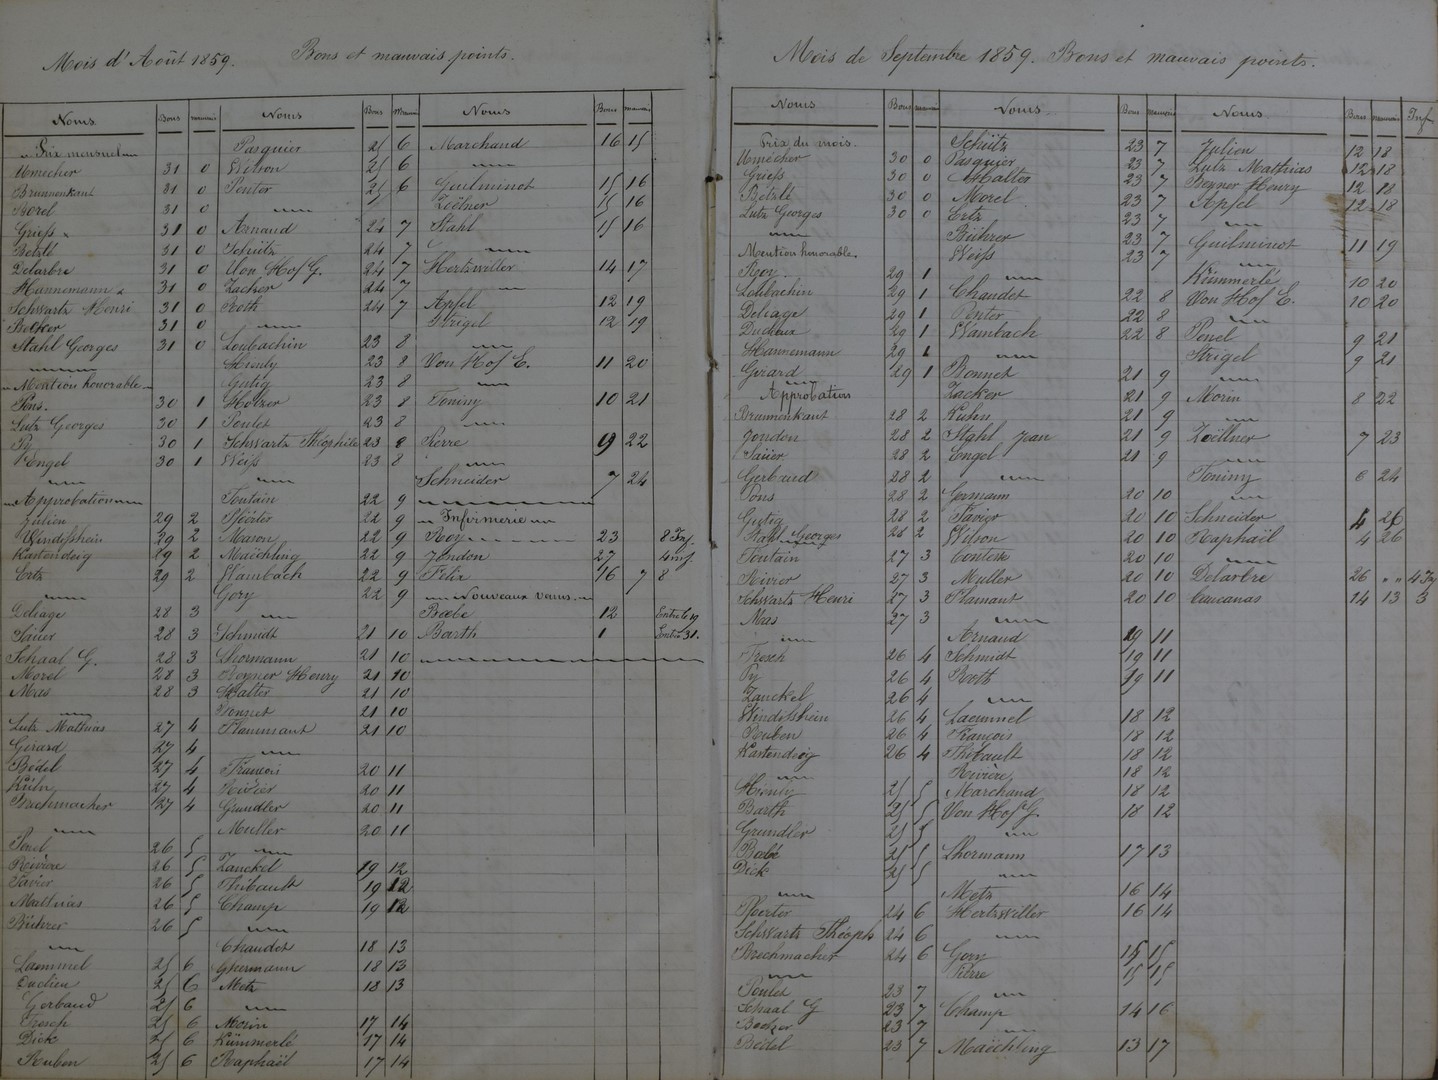 Mois d'Août 1859. Bons et mauvais points.
Noms Bons mauvais
Prix mensuel
Umecher 31 0
Braunenkant 31 0
Borel 31 0
Griess 31 0
Betzlé 31 0
Delarbre 31 0
Hannemann 31 0
Schwartz Henri 31 0
Becker 31 0
Stahl Georges 31 0
Mention honorable
Pons. 30 1
Lutz Georges 30 1
Py 30 1
Engel 30 1
Approbation
Julien 29 2
Windisshein 29 2
Kartendeig 29 2
Ertz 29 2
Deliage 28 3
Saüer 28 3
Schaal G. 28 3
Morel 28 3
Mas 28 3
Lutz Mathias 27 4
Gérard 27 4
Bédel 27 4
Kühn 27 4
Bechmacher 27 4
Penel 26 5
Rivière 26 5
Favier 26 5
Mathias 26 5
Bührer 26 5
Laemmel 25 6
25 6
Gerbaud 25 6
Fresch 25 6
Dick 25 6
Ruben 25 6
Noms Bons Mauvais
Pasquier 25 6
Wilson 25 6
Penter 25 6
Arnaud 24 7
Schütz 24 7
Von Hof G. 24 7
Zacker 24 7
Roth 24 7
Loubachin 23 8
Hienly 23 8
Gutig 23 8
Holzer 23 8
Soulet 23 8
Schwartz Théophile 23 8
Weiss 23 8
Foutain 22 9
Pfoerter 22 9
Maron 22 9
Maëchling 22 9
Wambach 22 9
Gory 22 9
Schmidt 21 10
Lhormann 21 10
Regner Henry 21 10
Halter 21 10
Bonnet 21 10
Flammant 21 10
François 20 11
Rivier 20 11
Grundler 20 11
Muller 20 11
Zanckel 19 12
Thibault 19 12
Champ 19 12
Chaudet 18 13
Ghermann 18 13
Metz 18 13
Morin 17 14
Kümmerlé 17 14
Raphaël 17 14
Noms Bons mauvais
Marchand 16 15
Guilminot 15 16
Zoëlner 15 16
Stahl 15 16
Hertzwiller 14 17
Apfel 12 19
Strigel 12 19
Von Hof E. 11 20
Toniny 10 21
Pierre 9 22
Schneider 7 24
Infirmerie
Roy 23 8 Inf.
Jondon 27 4 inf
Félix 16 7 8
Nouveaux venus.
Boebe 12 Entré le 19
Barth 1 Entré 31.
Mois de Septembre 1859. Bons et mauvais points.
Noms Bons mauvais
Prix du mois.
Umécher 30 0
Griess 30 0
Betzlé 30 0
Lutz Georges 30 0
Mention honorable.
Roy. 29 1
Loubachin 29 1
Deliage 29 1
29 1
Hannemann 29 1
Girard 29 1
Approbation
Braunenkant 28 2
Jondon 28 2
Saüer 28 2
Gerbaud 28 2
Pons 28 2
Gutig 28 2
Stahl Georges 28 2
Foutain 27 3
Rivier 27 3
Schwartz Henri 27 3
Mas 27 3
Fresch 26 4
Py 26 4
Zanckel 26 4
Windisshein 26 4
Ruben 26 4
Kartendeig 26 4
Hienly 25 5
Barth 25 5
Grundler 25 5
Boebé 25 5
Dick 25 5
Pfoerter 24 6
Schwartz Théoph 24 6
Bechmacher 24 6
Soulet 23 7
Schaal G 23 7
Becker 23 7
Bédel 23 7
Noms Bons mauvais
Schütz 23 7
Pasquier 23 7
Halter 23 7
Morel 23 7
Ertz 23 7
Bührer 23 7
Weiss 23 7
Chaudet 22 8
Penter 22 8
Wambach 22 8
Bonnet 21 9
Zacker 21 9
Kuhn 21 9
Stahl Jean 21 9
Engel 21 9
Germann 20 10
Favier 20 10
Wilson 20 10
20 10
Muller 20 10
Flamant 20 10
Arnaud 19 11
Schmidt 19 11
Roth 19 11
Laemmel 18 12
François 18 12
Thibault 18 12
Rivière 18 12
Marchand 18 12
Von Hof G. 18 12
Lhormann 17 13
Metz 16 14
Hertzwiller 16 14
Gory 15 15
Pierre 15 15
Champ 14 16
Maëchling 13 17
Noms Bons mauvais Inf
Julien 12 18
Lutz Mathias 12 18
Regner Henry 12 18
Apfel 12 18
Guilminot 11 19
Kümmerlé 10 20
Von Hof E. 10 20
Penel 9 21
Strigel 9 21
Morin 8 22
Zoëllner 7 23
Toniny 6 24
Schneider 4 26
Raphaël 4 26
Delarbre 26 " " 4 Inf
14 13 3